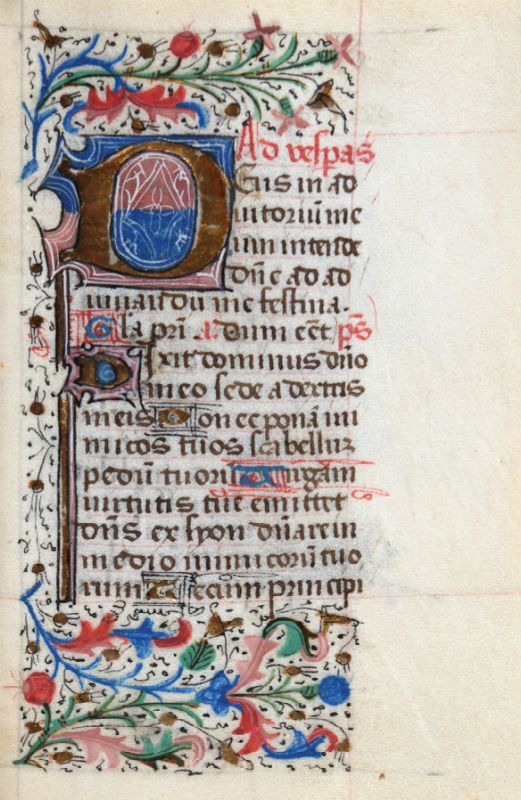 Ad vespas
Deus in ad
iutoriū me
um intende
dn̄e ad ad
iuuandū me festina.
Gl'a pr̄i Ad um cēt ps
Dixit dominus dn̄o
meo sede a dextris
meis Don ec ponā ini
micos tuos scabellum
pedū tuoru Uirgam
uirtutis tue emittet
dn̄s ex syon dn̄are in
medio inimicorū tuo
rum Tecum principi